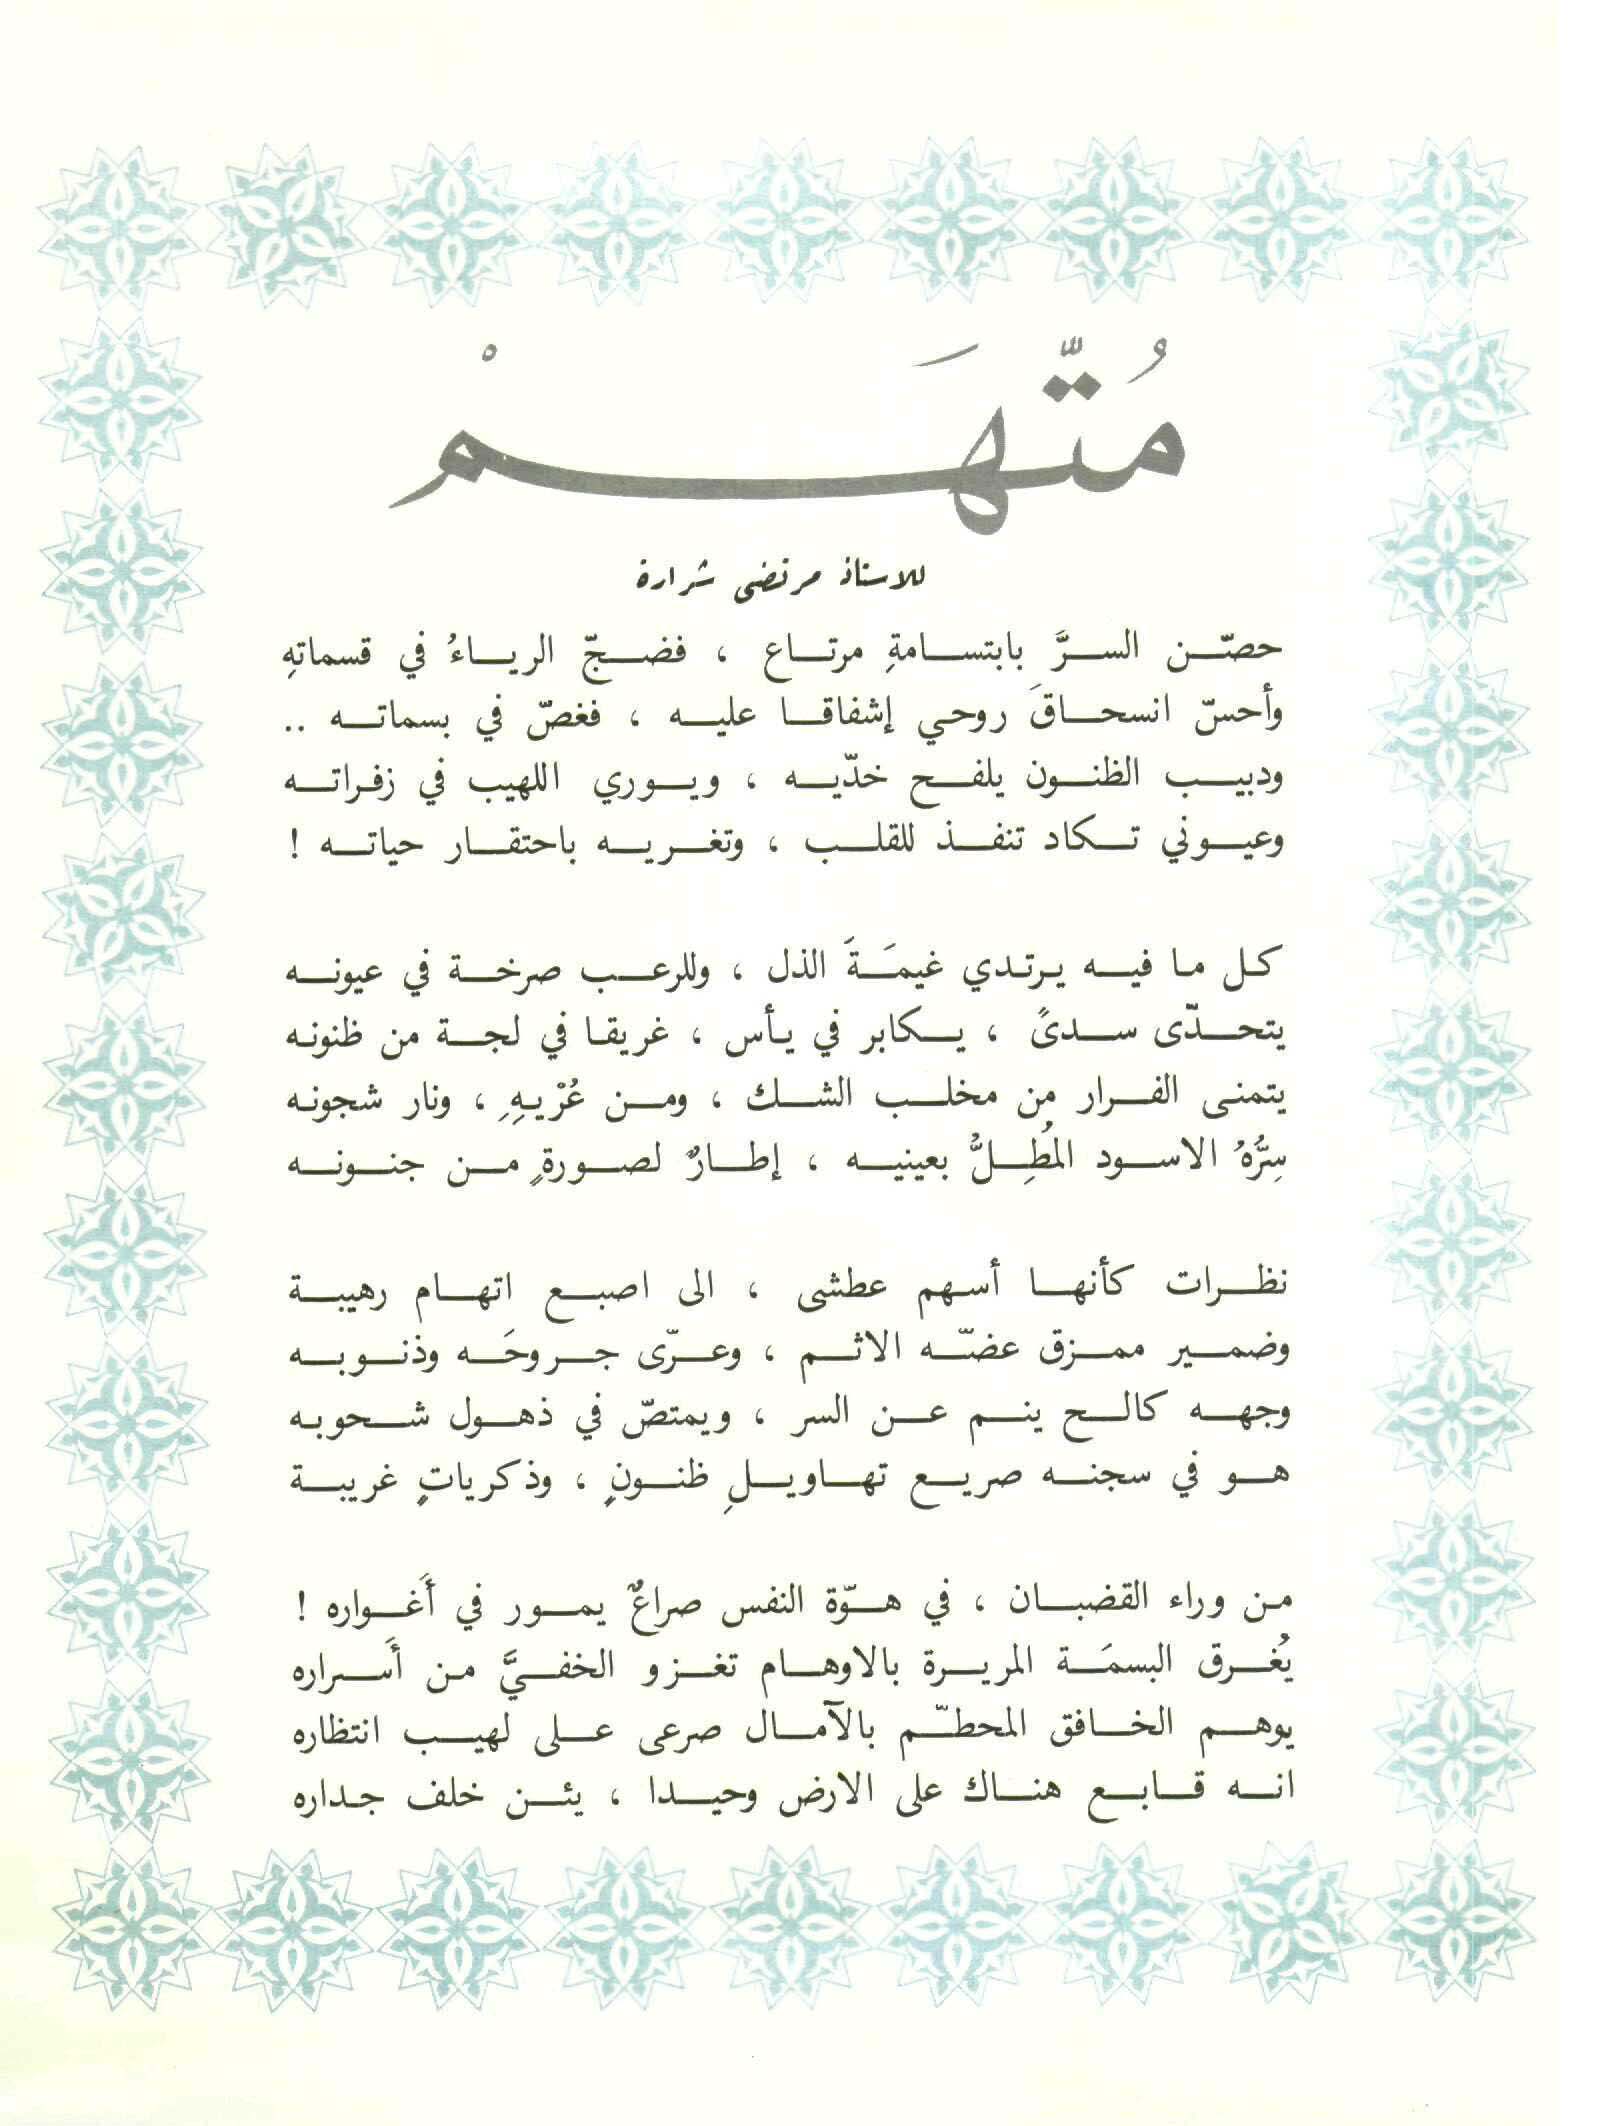 مُتَّهَمْ
للاستاذ مرتضى شرارة
حصّن السرَّ بابتسامةِ مرتاع ، فضجّ الرياءُ في قسماتهِ
وأحسّ انسحاقَ روحي إشفاقا عليه ، فغصّ في بسماته ..
ودبيب الظنون يلفح خدّيه ، ويوري اللهيب في زفراته
وعيوني تكاد تنفذ للقلب ، وتغريه باحتقار حياته !
كل ما فيه يرتدي غيمَةَ الذل ، وللرعب صرخة في عيونه
يتحدّى سدىً ، يكابر في يأس ، غريقا في لجة من ظنونه
يتمنى الفرار من مخلب الشك ، ومن عُرْيهِ ، ونار شجونه
سِرُّهُ الاسود المُطِلُّ بعينيه ، إطارٌ لصورةٍ من جنونه
نظرات كأنها أسهم عطشى ، الى اصبع اتهام رهيبة
وضمير ممزق عضّه الاثم ، وعرّى جروحَه وذنوبه
وجهه كالح ينم عن السر ، ويمتصّ في ذهول شحوبه
هو في سجنه صريع تهاويلِ ظنونٍ ، وذكرياتٍ غريبة
من وراء القضبان ، في هوّة النفس صراعٌ يمور في أَغواره !
يُغرق البسمَة المريرة بالاوهام تغزو الخفيَّ من أَسراره
يوهم الخافق المحطّم بالآمال صرعى على لهيب انتظاره
انه قابع هناك على الارض وحيدا ، يئن خلف جداره